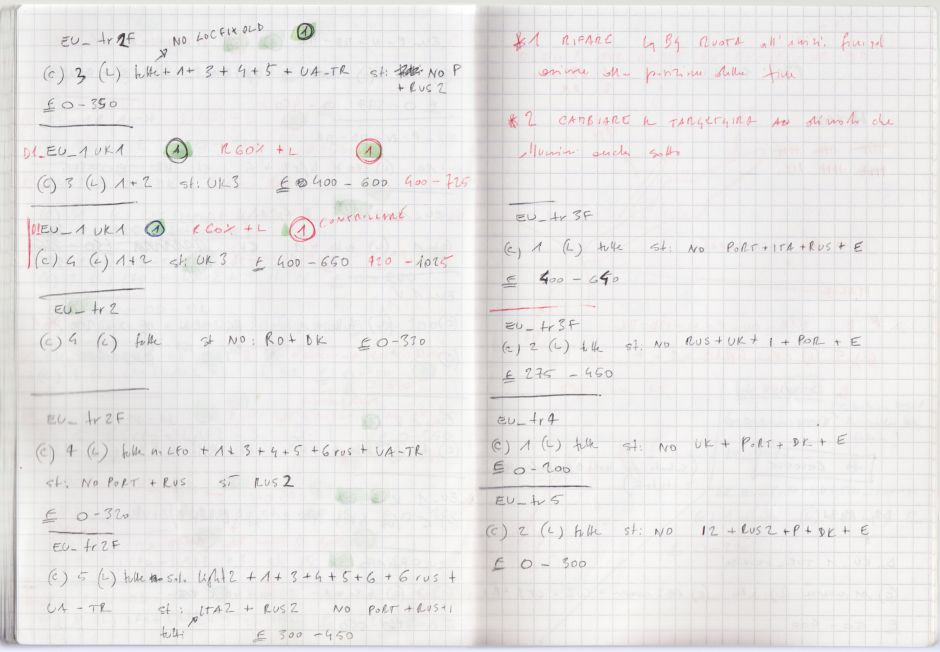 EU_tr2F NO LOCFIXOLD 1
(C) 3 (L) tutte + 1 + 3 + 4 + 5 + UA-TR st: NO P
+ RUS 2
£ 0-350
D1_EU_1 UK1 1 R60% + L 1
(C) 3 (L) 1+2 st: UK3 £ 400-600 400-725
EU_1 UK1 1 R60% + L 1 CONTROLLARE
(C) 4 (L) 1+2 st: UK3 £ 400-650 720-1025
EU_tr2
(C) 4 (L) tutte st NO: RO+DK £ 0-330
EU_tr2F
(C) 4 (L) tutte no LFO + 1+3+4+5+6rus + UA-TR
st: NO PORT + RUS SI RUS2
£ 0-320
EU_tr2F
(C) 5 (L) tutte solo light2 + 1+3+4+5+6+6rus+
UA-TR st: ITA2 + RUS2 NO PORT+RUS+1
tutti £ 300-450
*1 RIFARE RUOTA
posizione della fine
*2 CAMBIARE che
illumini anche sotto
EU_tr3F
(C) 1 (L) tutte st: NO PORT+ITA+RUS+E
£ 400-640
EU_tr3F
(C) 2 (L) tutte st: NO RUS+UK+1+POR+E
£ 275-450
EU_tr4
(C) 1 (L) tutte st: NO UK+PORT+DK+E
£ 0-200
EU_tr5
(C) 2 (L) tutte st: NO 12+RUS2+P+DK+E
£ 0-300